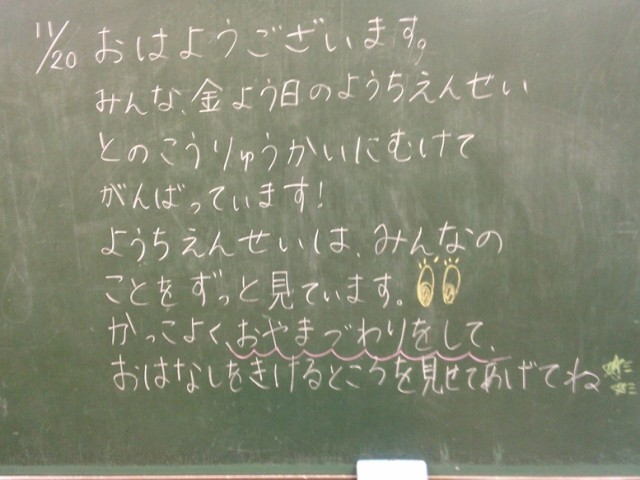 11/20 おはようございます。
みんな、金よう日のようちえんせい
とのこうりゅうかいにむけて
がんばっています!
ようちえんせいは、みんなの
ことをずっと見ています。
かっこよく、おやまづわりをして、
おはなしをきけるところを見せてあげてね